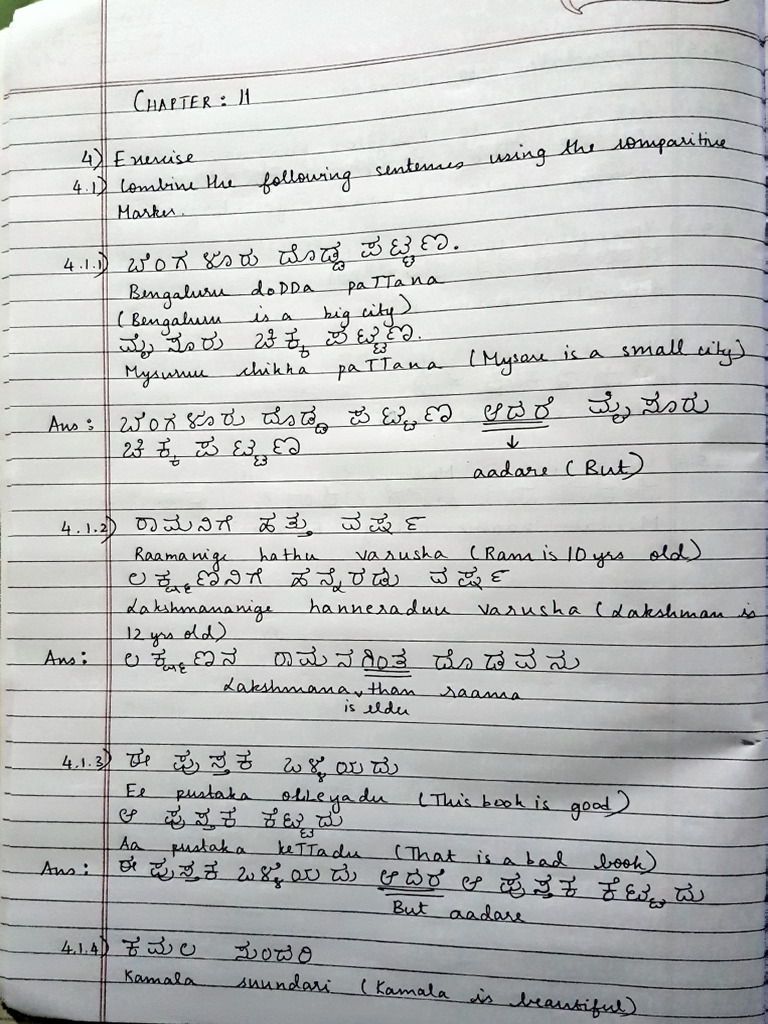 CHAPTER: 11
4) Exercise
4.1) Combine the following sentences using the comparitive
Marker.
4.1.1) ಬೆಂಗಳೂರು ದೊಡ್ಡ ಪಟ್ಟಣ.
Bengaluru doDDa paTTana
(Bengaluru is a big city)
ಮೈಸೂರು ಚಿಕ್ಕ ಪಟ್ಟಣ.
Mysuruu chikka paTTana (Mysore is a small city)
Ans: ಬೆಂಗಳೂರು ದೊಡ್ಡ ಪಟ್ಟಣ ಆದರೆ ಮೈಸೂರು
ಚಿಕ್ಕ ಪಟ್ಟಣ
↓
aadare (But)
4.1.2) ರಾಮನಿಗೆ ಹತ್ತು ವರ್ಷ
Raamanige hathu varusha (Ram is 10 yrs old)
ಲಕ್ಷ್ಮಣನಿಗೆ ಹನ್ನೆರಡು ವರ್ಷ
Lakshmananige hanneraduu varusha (Lakshman is
12 yrs old)
Ans: ಲಕ್ಷ್ಮಣನ ರಾಮನಗಿಂತ ದೊಡವನು
Lakshmana is elder than raama
4.1.3) ಈ ಪುಸ್ತಕ ಒಳ್ಳೆಯದು
Ee pustaka olleyadu (This book is good)
ಆ ಪುಸ್ತಕ ಕೆಟ್ಟದು
Aa pustaka keTTadu (That is a bad book)
Ans: ಈ ಪುಸ್ತಕ ಒಳ್ಳೆಯದು ಆದರೆ ಆ ಪುಸ್ತಕ ಕೆಟ್ಟದು
But aadare
4.1.4) ಕಮಲ ಸುಂದರಿ
Kamala suundari (Kamala is beautiful)